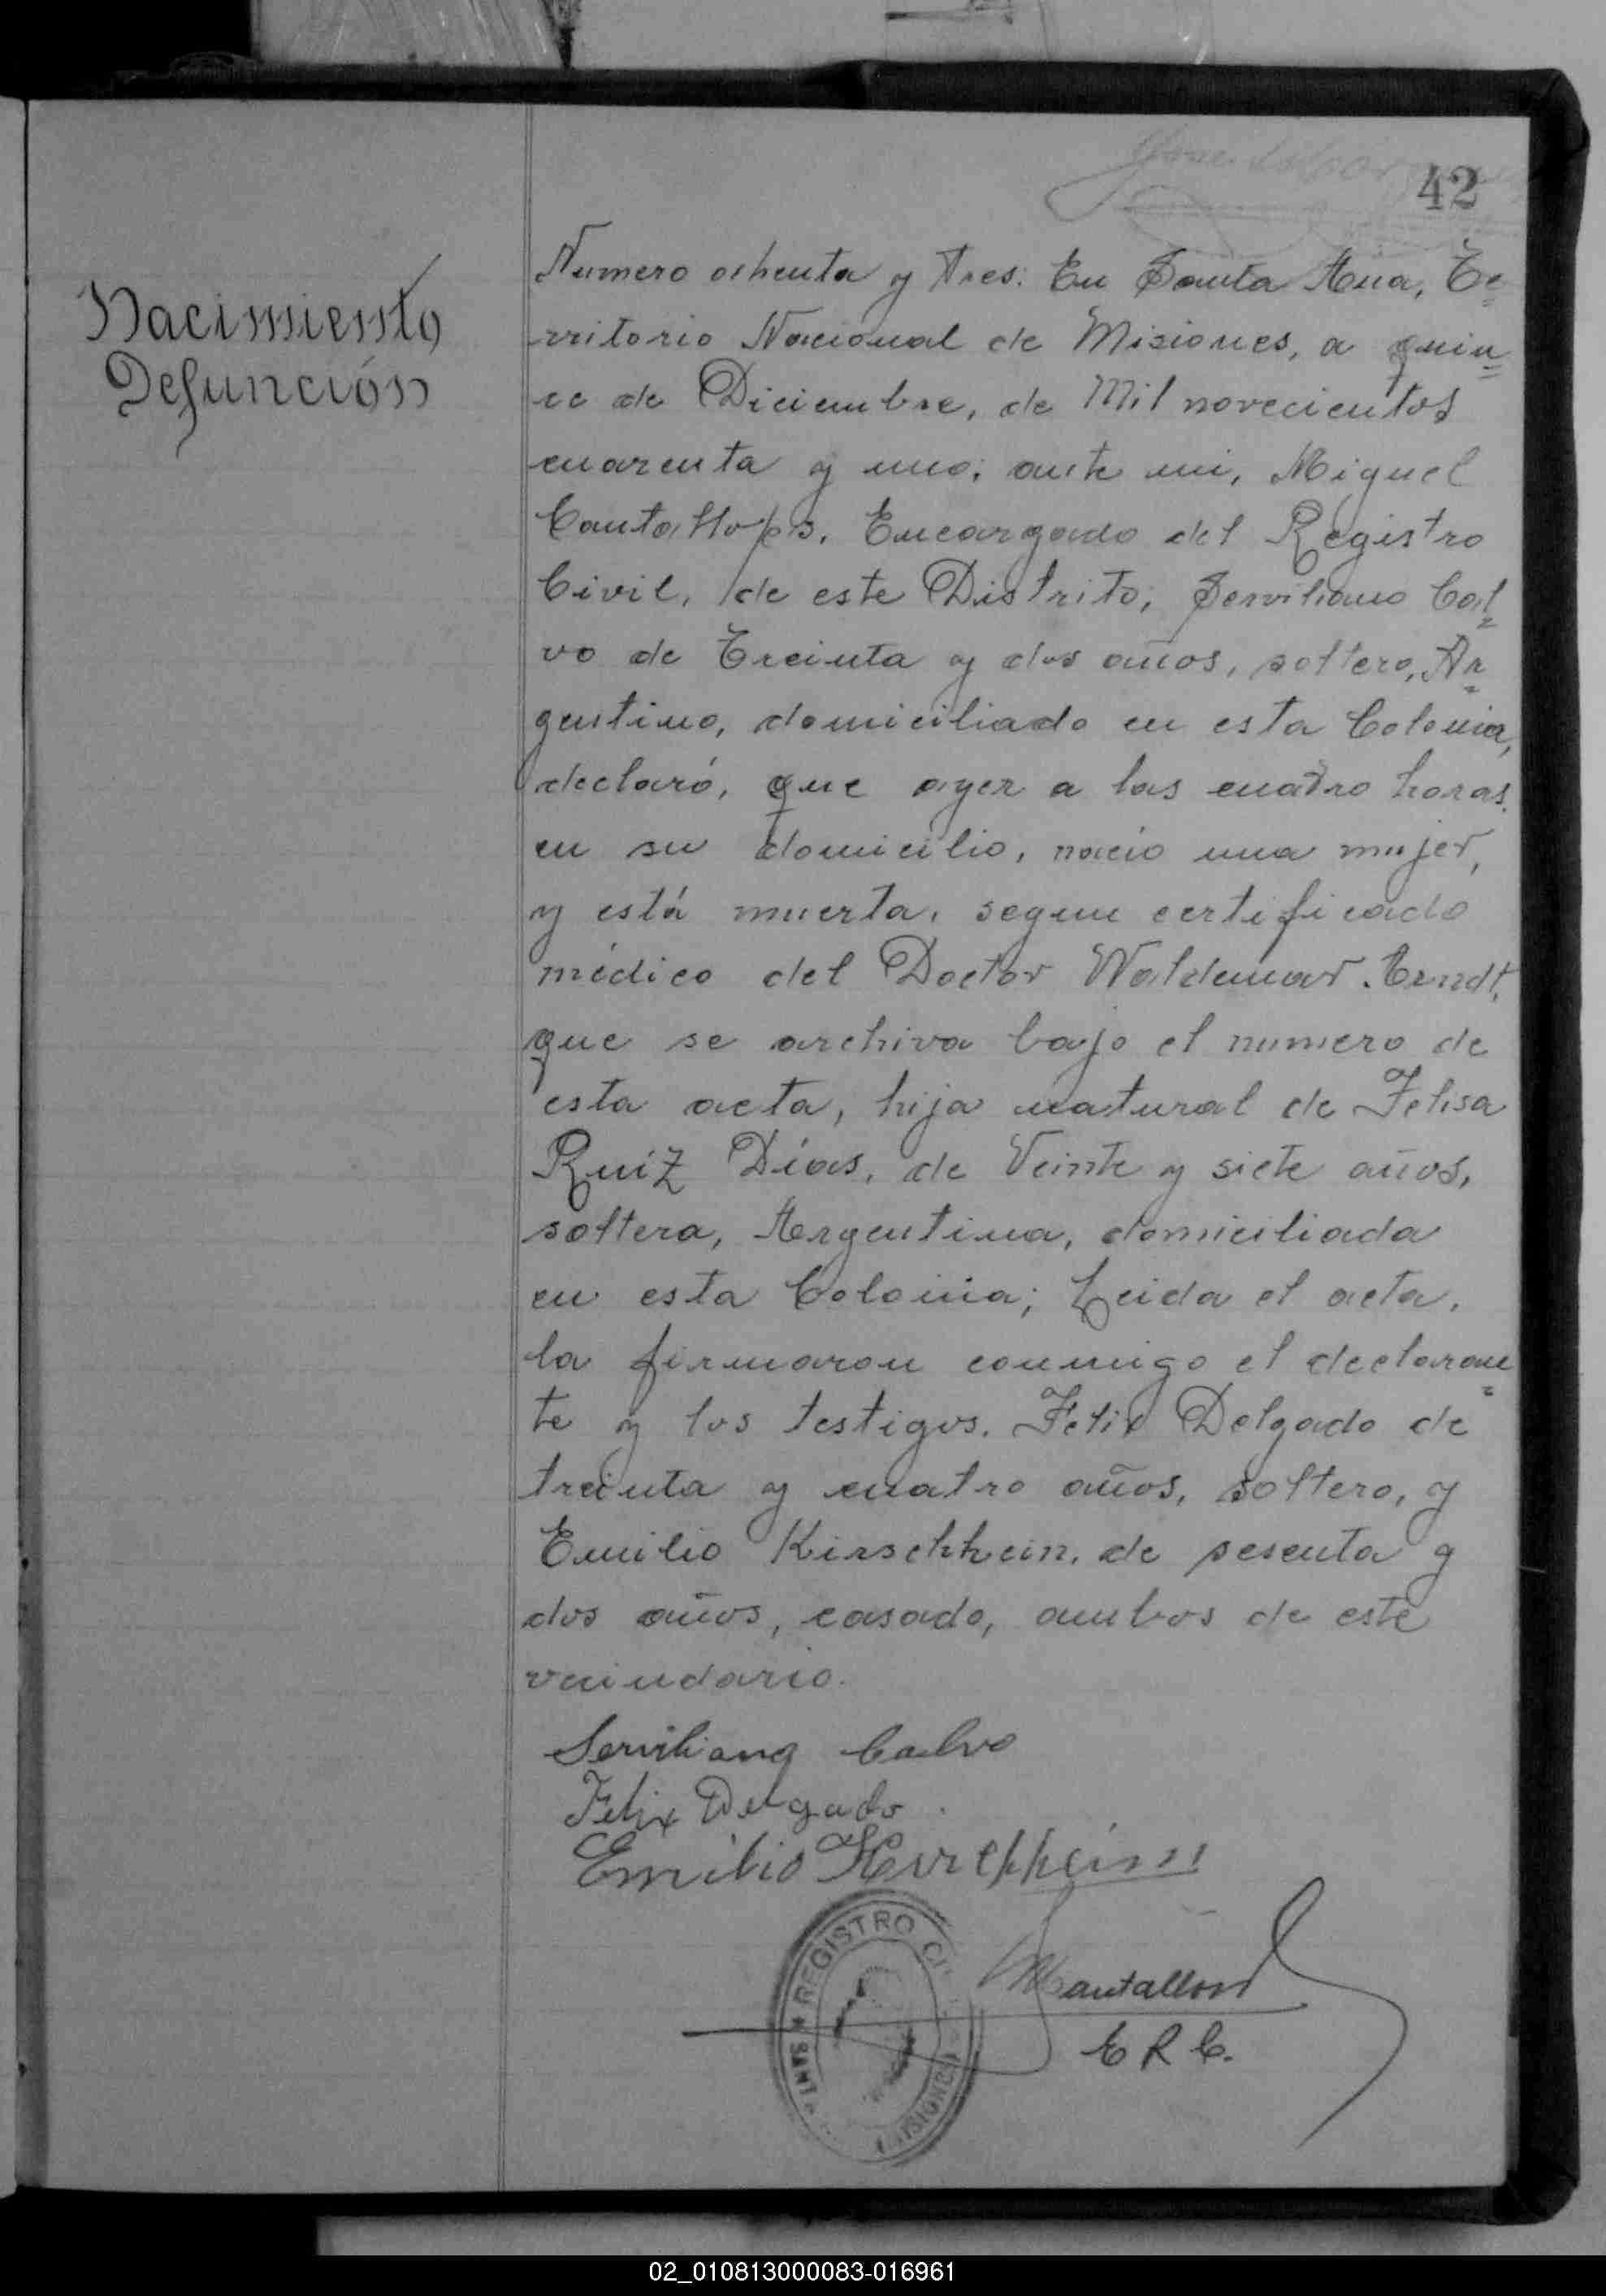 42
Nacimiento
Defunción
Numero ochenta y tres: En Santa Ana, Te=
rritorio Nacional de Misiones, a quin=
ce de Diciembre, de Mil novecientos
cuarenta y uno; ante mi, Miguel
Cantallops, Encargado del Registro
Civil, de este Distrito; Serviliano Cal=
vo de Treinta y dos años, soltero, Ar=
gentino, domiciliado en esta Colonia,
declaró, que ayer a las cuatro horas.
en su domicilio, nacio una mujer,
y está muerta, segun certificado
médico del Doctor Waldemar Arndt,
que se archiva bajo el numero de
esta acta, hija natural de Felisa
Ruíz Días, de Veinte y siete años,
soltera, Argentina, domiciliada
en esta Colonia; Leida el acta,
la firmaron conmigo el declaran=
te y los testigos. Felix Delgado de
treinta y cuatro años, soltero, y
Emilio Kirschhein, de sesenta y
dos años, casado, ambos de este
vecindario.
Serviliano Calvo
Felix Delgado
Emilio
REGISTRO
MISIONES
MCantallops
E R C.
02_010813000083-016961